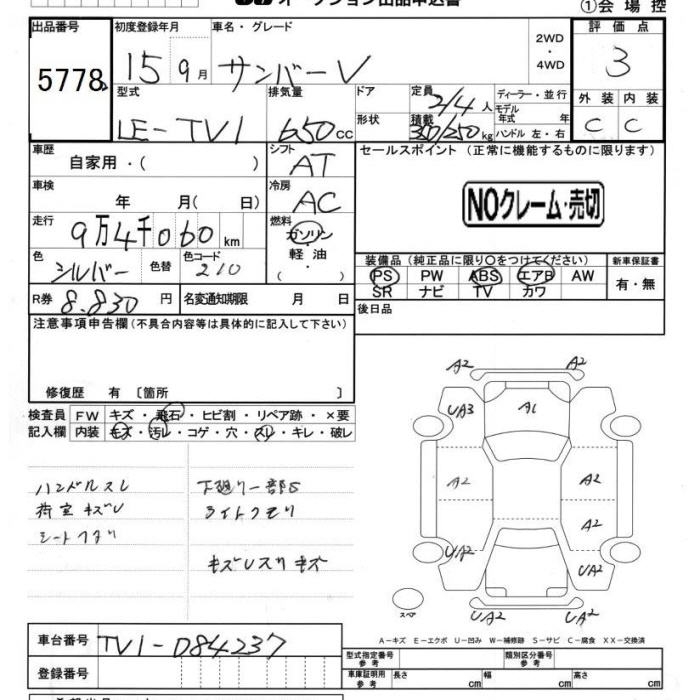 オークション出品申込書
①会場控
出品番号
5778
初度登録年月
車名・グレード
15 9月 サンバーV
2WD
・
4WD
評価点
3
外装 内装
C C
型式
LE-TV1
排気量
650cc
ドア
形状
定員
2/4人
積載
350/250kg
ディーラー・並行
モデル
年式 年
ハンドル 左・右
車歴
自家用・( )
シフト
AT
セールスポイント (正常に機能するものに限ります)
NOクレーム・売切
車検
年 月( 日)
冷房
AC
走行
9万4千060km
燃料
ガソリン
・
軽油
・
( )
色
シルバー
色替
色コード
210
装備品(純正品に限り○をつけてください)
PS PW ABS エアB AW
SR ナビ TV カワ
新車保証書
有・無
R券 8.830円
名変通知期限 月 日
後日品
注意事項申告欄(不具合内容等は具体的に記入して下さい)
修復歴 有 〔箇所 〕
検査員
記入欄
FW キズ・飛石・ヒビ割・リペア跡・×要
内装 キズ・汚レ・コゲ・穴・スレ・キレ・破レ
ハンドルスレ
荷室キズU
シートフダリ
下廻り一部S
ライトクモリ
キズUスリキズ
A2 A2
UA3 A1
A2 A2
A2
UA2 UA2
A2 A2
スペア
A-キズ E-エクボ U-凹み W-補修跡 S-サビ C-腐食 XX-交換済
車台番号 TV1-084237
登録番号
型式指定番号
参考
類別区分番号
参考
車庫証明用
参考
長さ cm 幅 cm 高さ cm